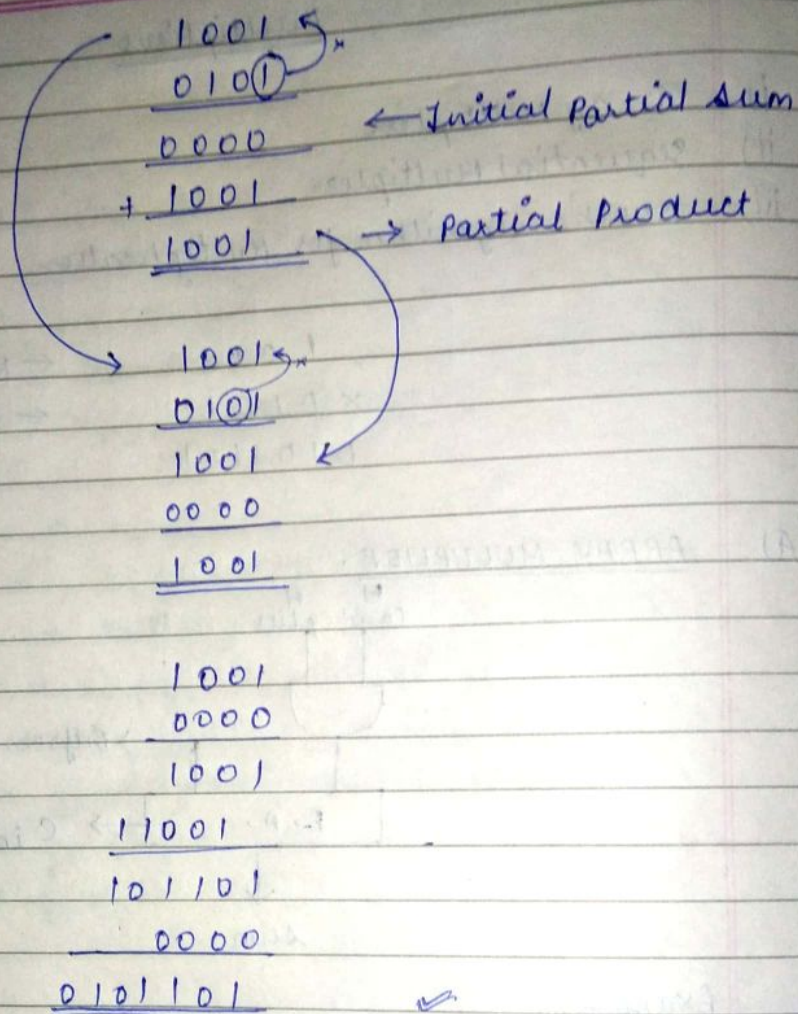 1001
0101
0000 ← Initial Partial Sum
+ 1001
1001 → Partial Product
1001
0101
1001
0000
1001
1001
0000
1001
11001
101101
0000
0101101